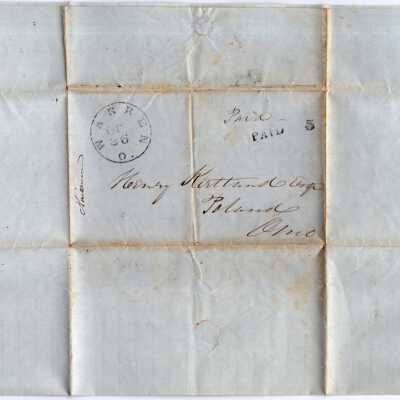 WARREN O.
26
Paid
PAID 5
Henry Kirtland Esqr
Poland
Ohio